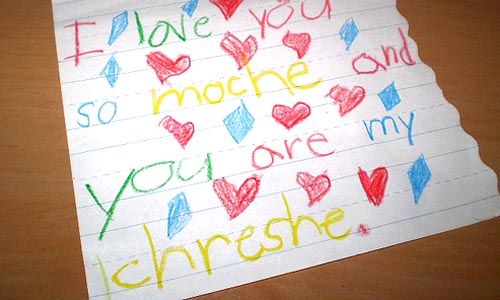 I love you
so moche and
you are my
chreshe.